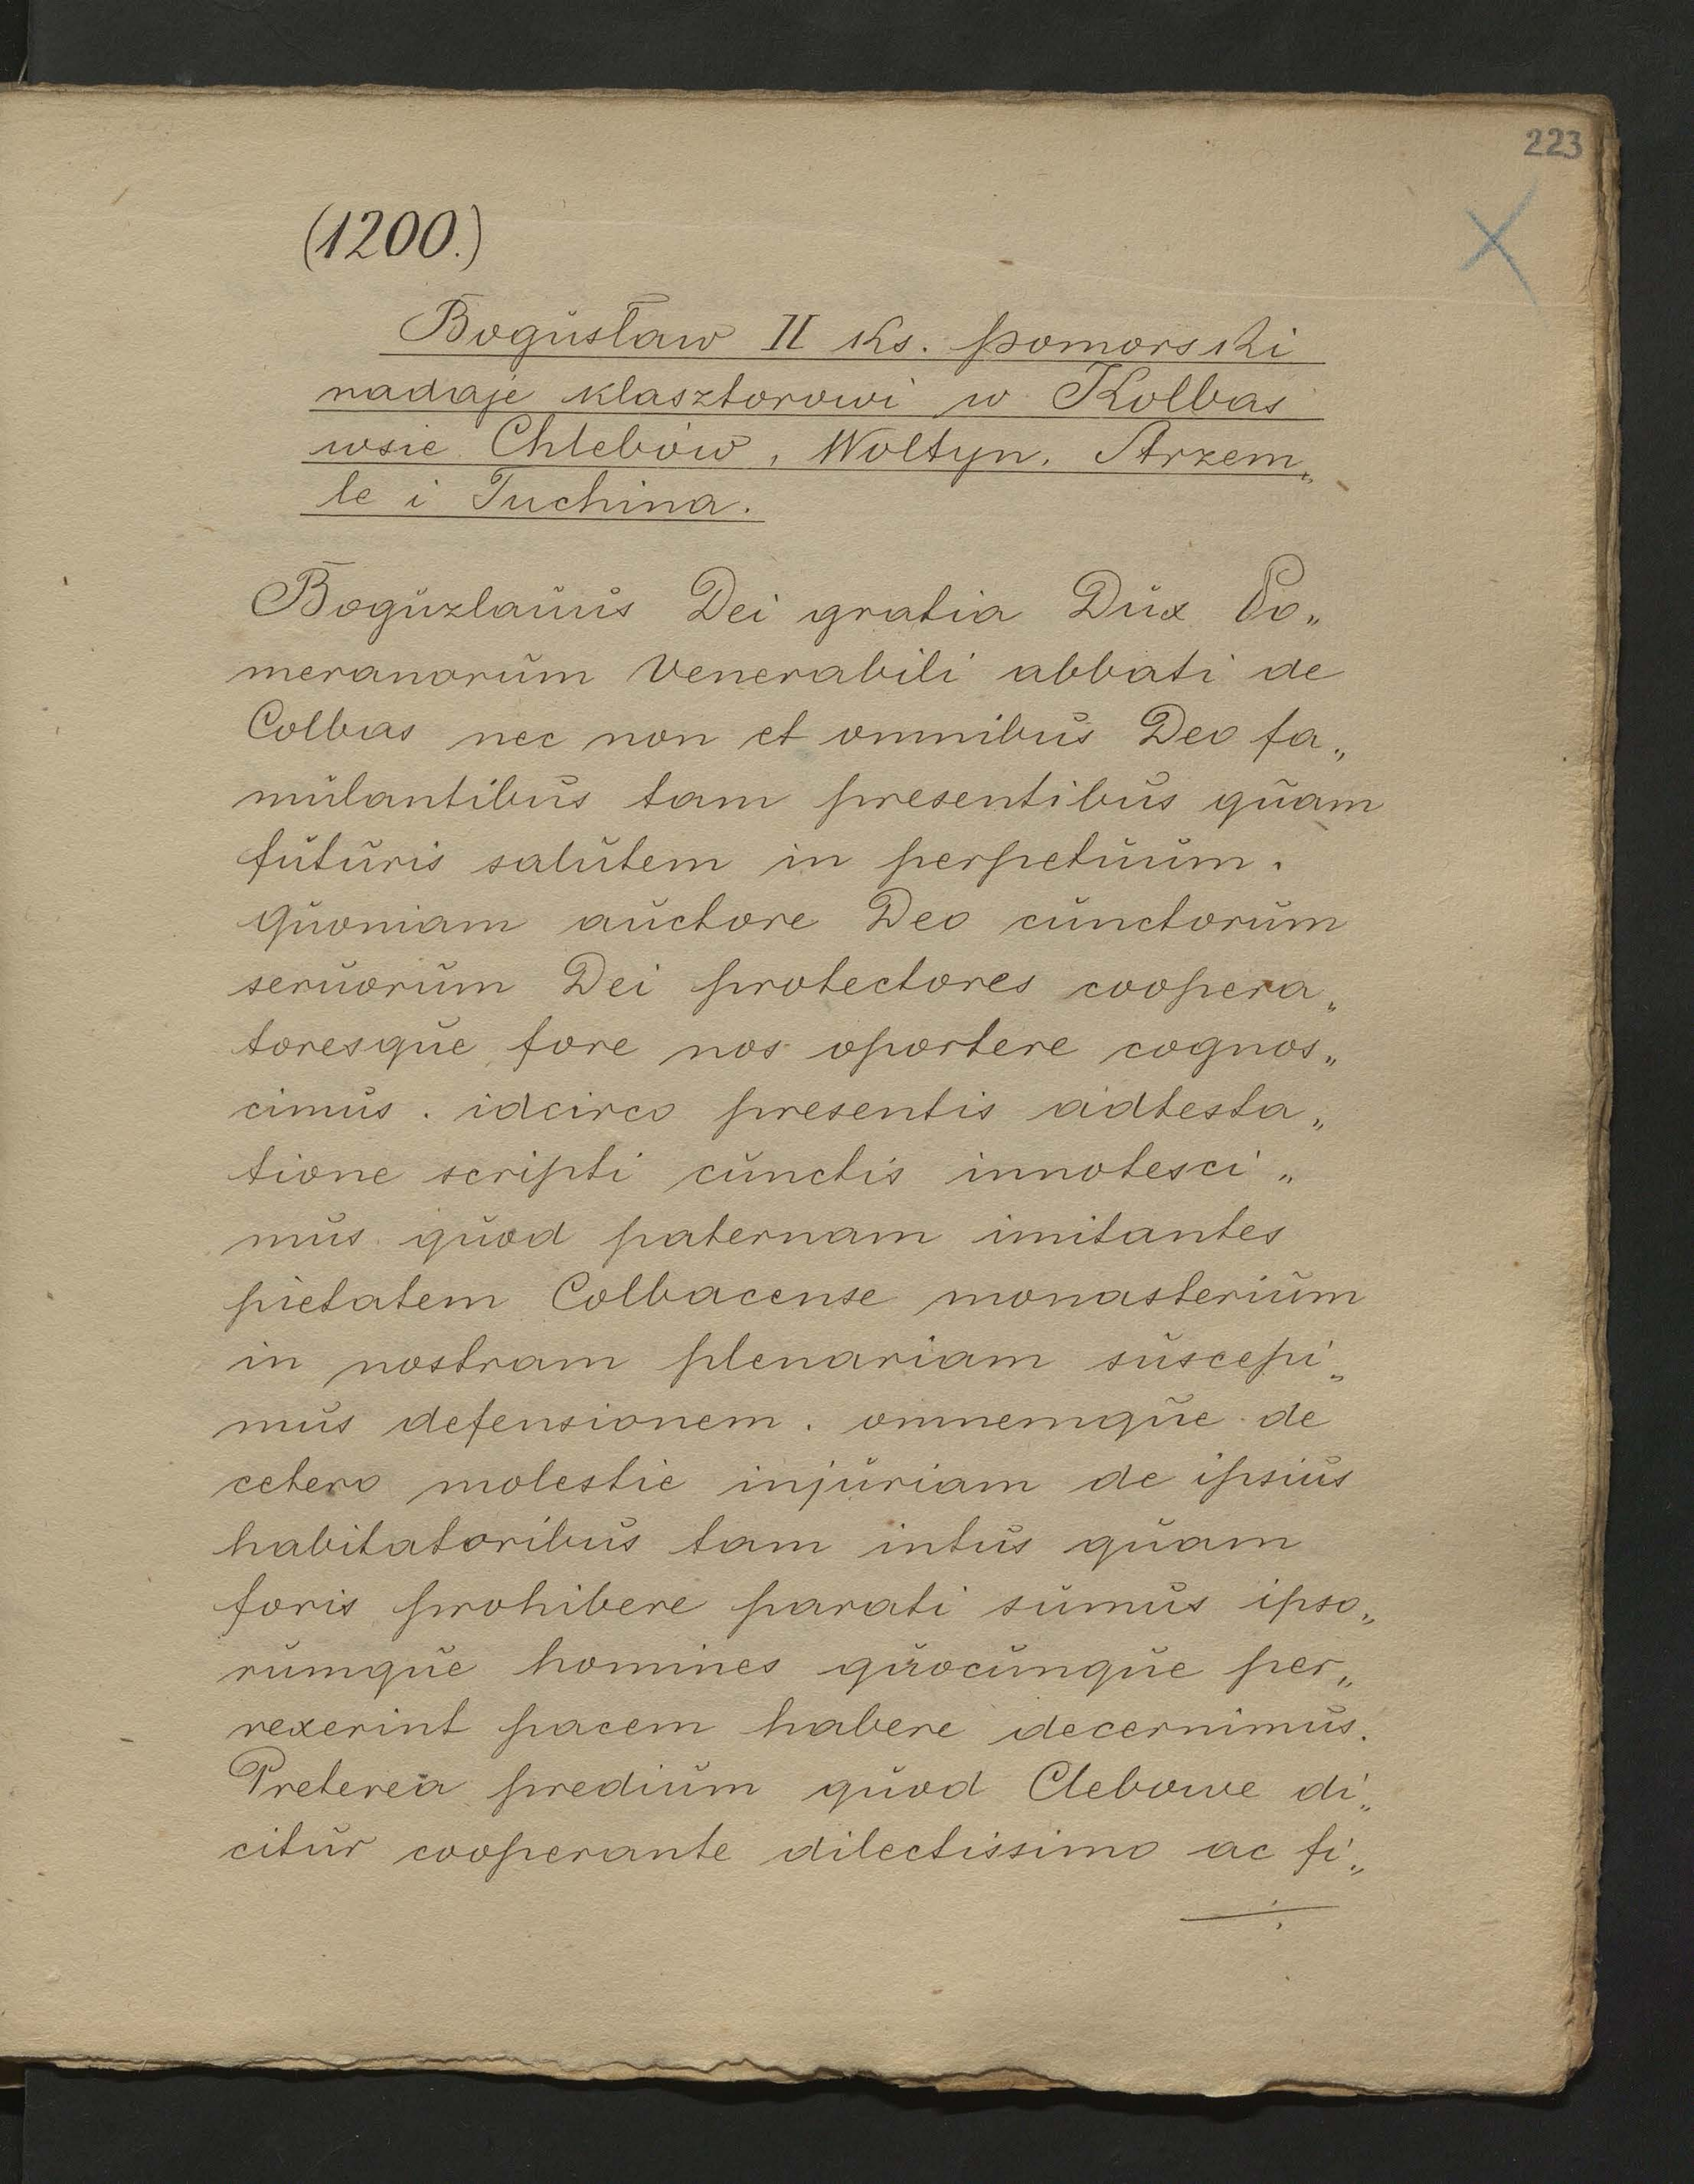 223
(1200.)
Bogusław II Ks. pomorski
nadaje klasztorowi w Kolbas
wsie Chlebów, Woltyn, Strzem„
le i Tuchina.
Boguzlauus Dei gratia Dux Po„
meranorum Venerabili abbati de
Colbas nec non et omnibus Deo fa„
mulantibus tam presentibus quam
futuris salutem in perpetuum.
Quoniam auctore Deo cunctorum
seruorum Dei protectores coopera„
toresque fore nos oportere cognos„
cimus. idcirco presentis adtesta„
tione scripti cunctis innotesci„
mus quod paternam imitantes
pietatem Colbacense monasterium
in nostram plenariam suscepi„
mus defensionem. omnemque de
cetero molestie injuriam de ipsius
habitatoribus tam intus quam
foris prohibere parati sumus ipso„
rumque homines quocunque per„
rexerint pacem habere decernimus.
Preterea predium quod Clebowe di„
citur cooperante dilectissimo ac fi„